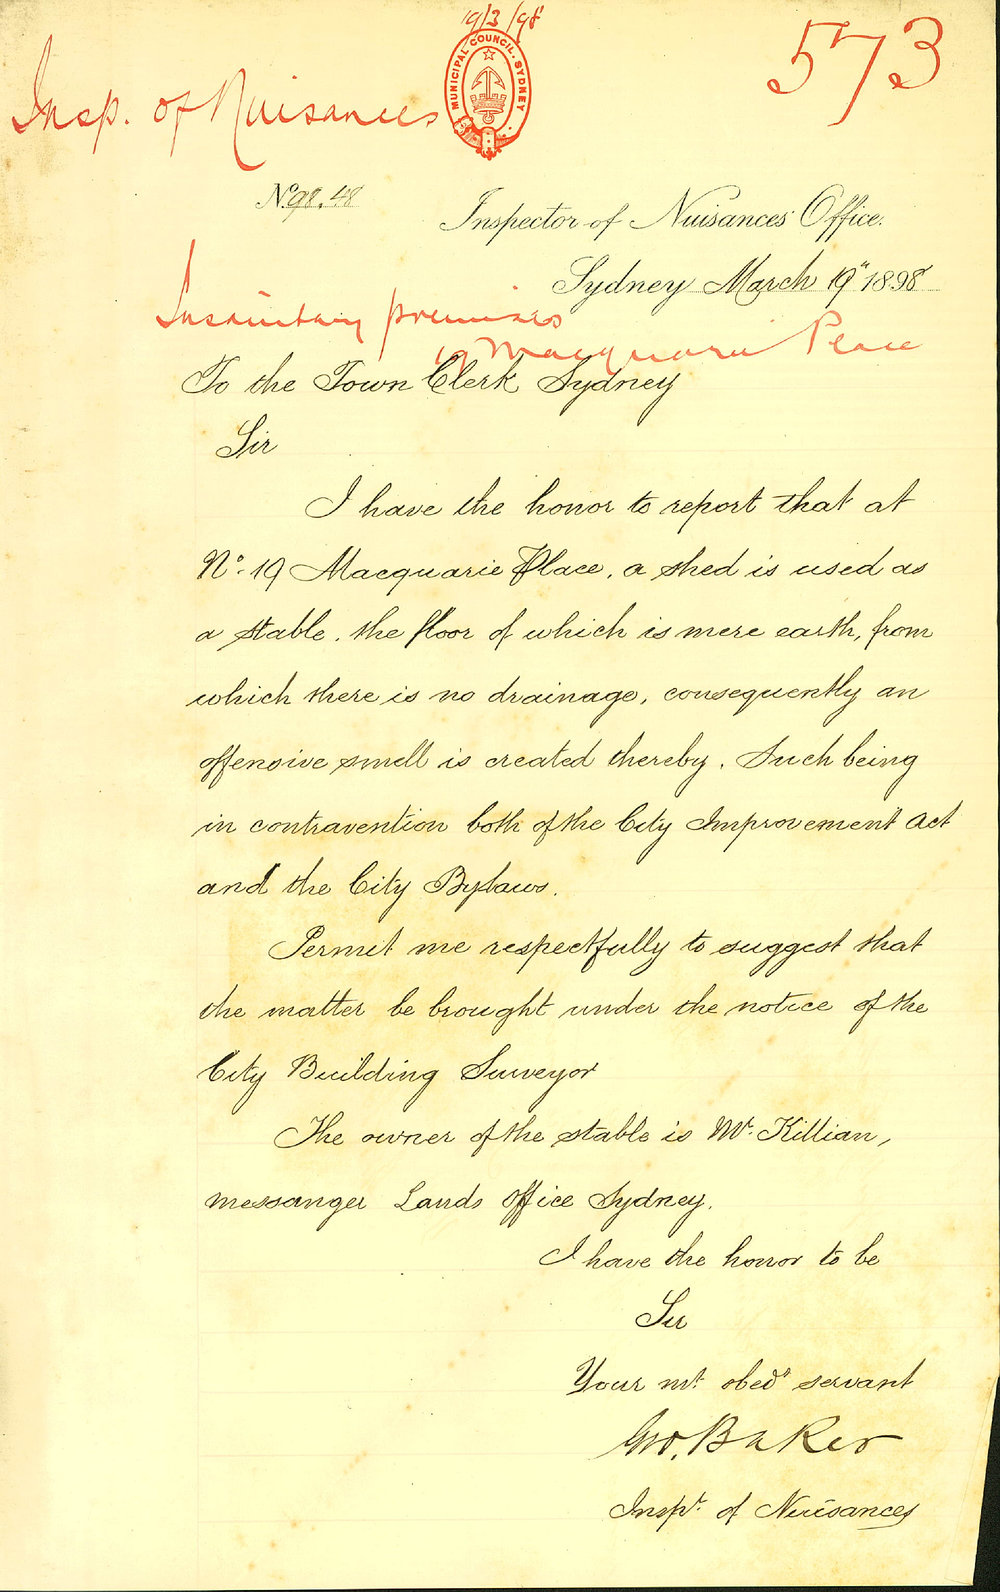 19/3/98
573
Insp. of Nuisances
MUNICIPAL COUNCIL. SYDNEY
No 98.48
Inspector of Nuisances Office.
Sydney March 19th 1898
Insanitary premises
19 Macquarie Place
To the Town Clerk Sydney
Sir
I have the honor to report that at
No. 19 Macquarie Place, a shed is used as
a stable, the floor of which is mere earth, from
which there is no drainage, consequently an
offensive smell is created thereby. Such being
in contravention both of the City Improvement Act
and the City Bylaws.
Permit me respectfully to suggest that
the matter be brought under the notice of the
City Building Surveyor
The owner of the stable is Mr. Killian,
messanger Lands Office Sydney.
I have the honor to be
Sir
Your mt. obedt servant
Geo. Baker
Inspr. of Nuisances